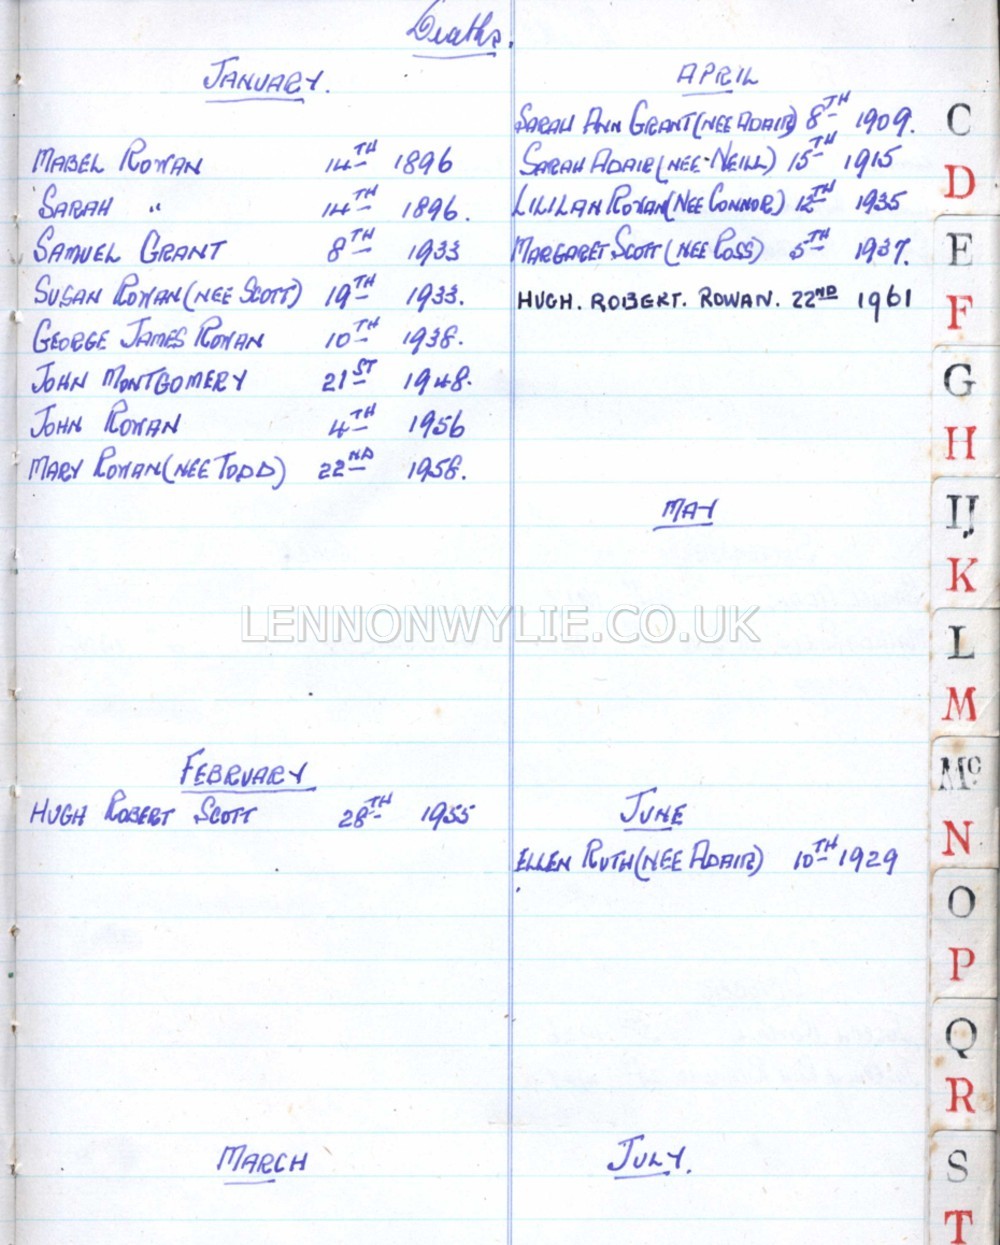 Deaths.
JANUARY.
MABEL ROWAN 14TH 1896
SARAH " 14TH 1896.
SAMUEL GRANT 8TH 1933
SUSAN ROWAN (NEE SCOTT) 19TH 1933.
GEORGE JAMES ROWAN 10TH 1938.
JOHN MONTGOMERY 21ST 1948.
JOHN ROWAN 4TH 1956
MARY ROWAN (NEE TODD) 22ND 1958.
FEBRUARY
HUGH ROBERT SCOTT 28TH 1955
MARCH
APRIL
SARAH ANN GRANT (NEE ADAIR) 8TH 1909.
SARAH ADAIR (NEE-NEILL) 15TH 1915
LILILAN ROWAN (NEE CONNOR) 12TH 1935
MARGARET SCOTT (NEE ROSS) 5TH 1937.
HUGH. ROBERT. ROWAN. 22ND 1961
MAY
JUNE
ELLEN RUTH (NEE ADAIR) 10TH 1929
JULY.
C
D
E
F
G
H
IJ
K
L
M
Mc
N
O
P
Q
R
S
T
LENNONWYLIE.CO.UK